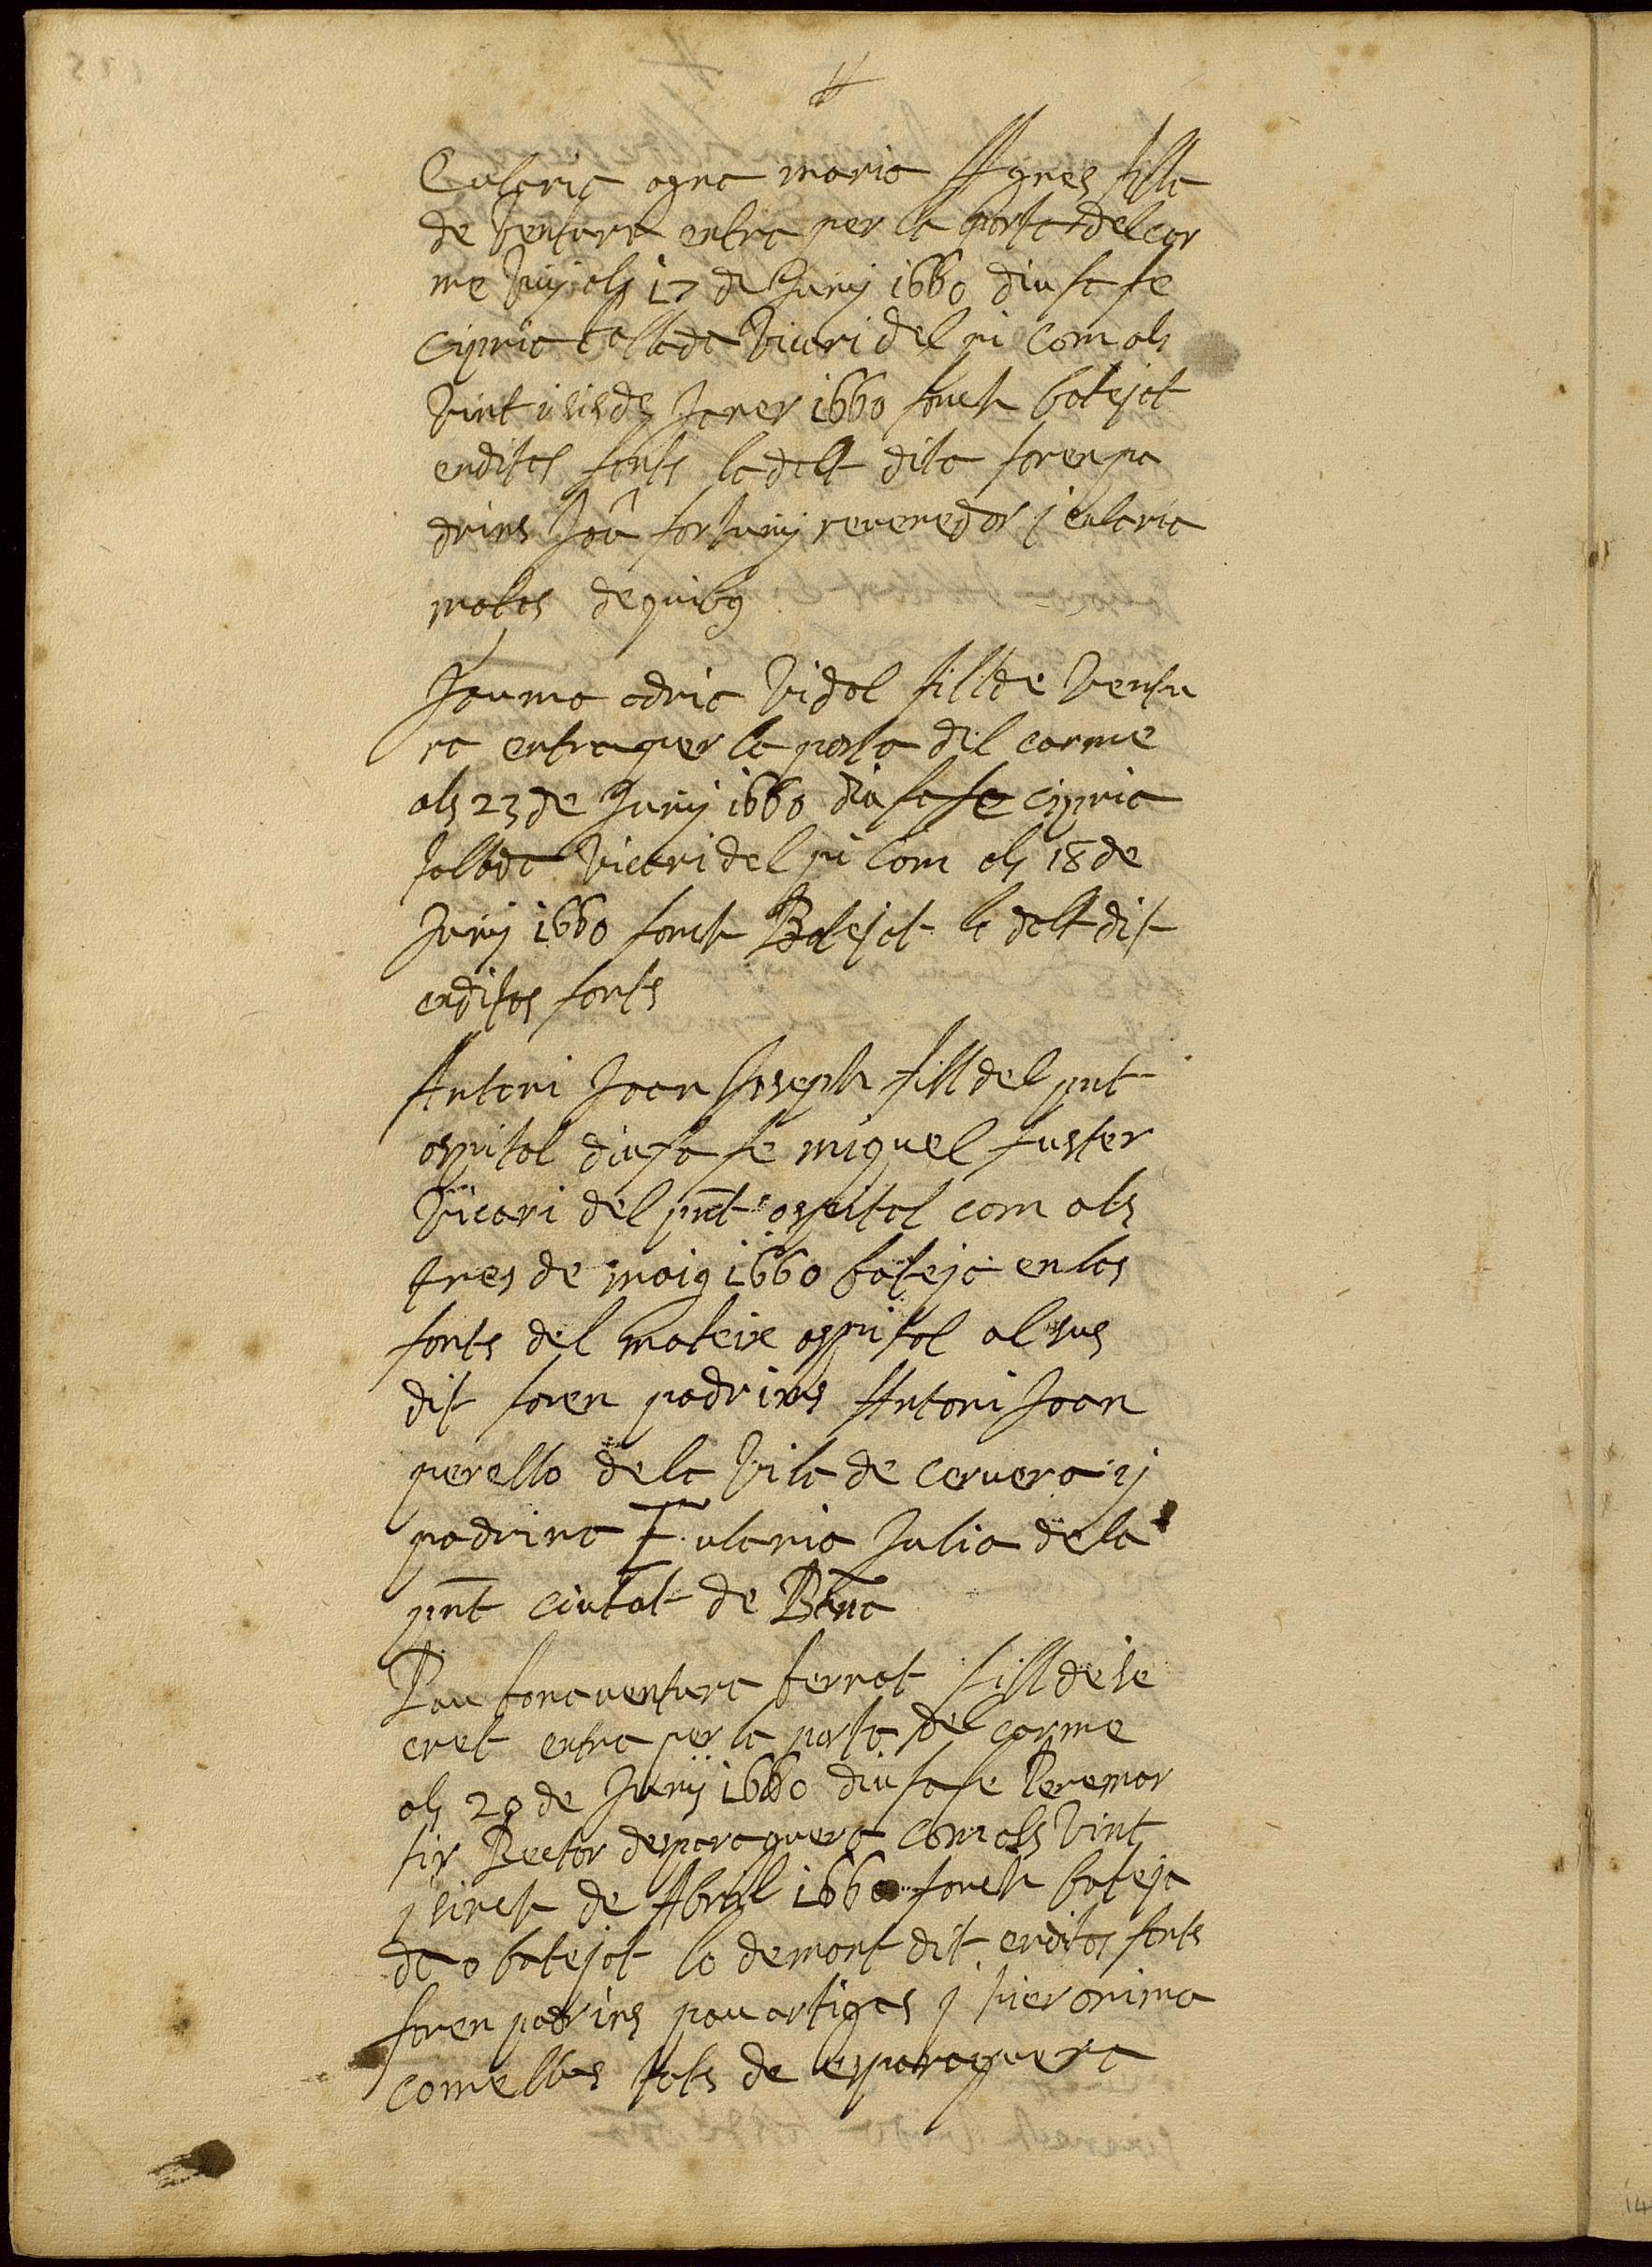 Eularia agna maria Agnes filla
de Ventura entra per la porta del car
me Juny als 17 de Juny 1660 diu fa fe
Cipria Vicari del pi com als
Vint i sis de Janer 1660 fonch batejat
enditas fonts la dalt dita foren pa
drins Joã fortuny revenedor j eularia
matas de quibus
Jauma adria Vidal fill de Ventu
ra entra per la porta del carme
als 23 de Juny 1660 diu fa fe cipria
Vicari del pi com als 18 de
Juny 1660 fonch Batejat lo dalt dit
enditas fonts
Antoni Joan Joseph fill del pnt
ospital diu fa fe miquel fuster
Vicari del pnt ospital com als
tres de maig 1660 bateja en las
fonts del mateix ospital al sus
dit foren padrins Antoni Joan
perello de la Vila de cervera ij
padrina Eularia Julia de la
pnt ciutat de Bãna
Pau bonaventura ferrat fill de se
cret entra per la porta del carme
als 28 de Juny 1660 diu fa fe Pere mar
tir Rector desparaguera com als Vint
j sinch de Abril 1660 fonch bateja
da o batejat lo demont dit enditas fonts
foren padrins pau artigas j hieronima
comellas tots de esparaguera
14